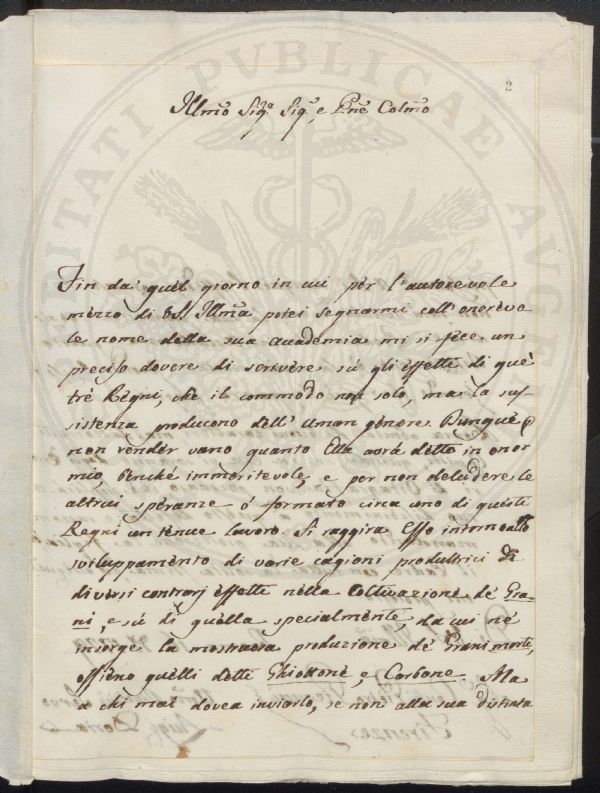 2
Illmo Sigr. Sigr., e Pne Colmo
Fin da' quel giorno in cui per l'autorevole
mezzo di VS. Illma potei segnarmi coll'onorevo-
le nome della sua accademia mi si fece un
preciso dovere di scrivere sù gli effetti di què
trè Regni, che il commodo non solo, ma la sus-
sistenza producono dell'uman genere. Dunque p
non render vano quanto Ella avrà detto in onor
mio, benchè immeritevole, e per non deludere le
altrui speranze ò formato circa uno di questi
Regni un tenue lavoro. Si raggira esso intorno allo
sviluppamento di varie cagioni produttrici di
diversi contrarj effetti nella Coltivazione dè Gra-
ni, e sù di quella specialmente, da cui nè
insorge la mostruosa produzione dè Grani morti,
ossieno quelli detti Ghiottone, e Carbone. Ma
a chi mai dovea inviarlo, se non alla sua distinta
VERITATI PVBLICAE VTILITATI